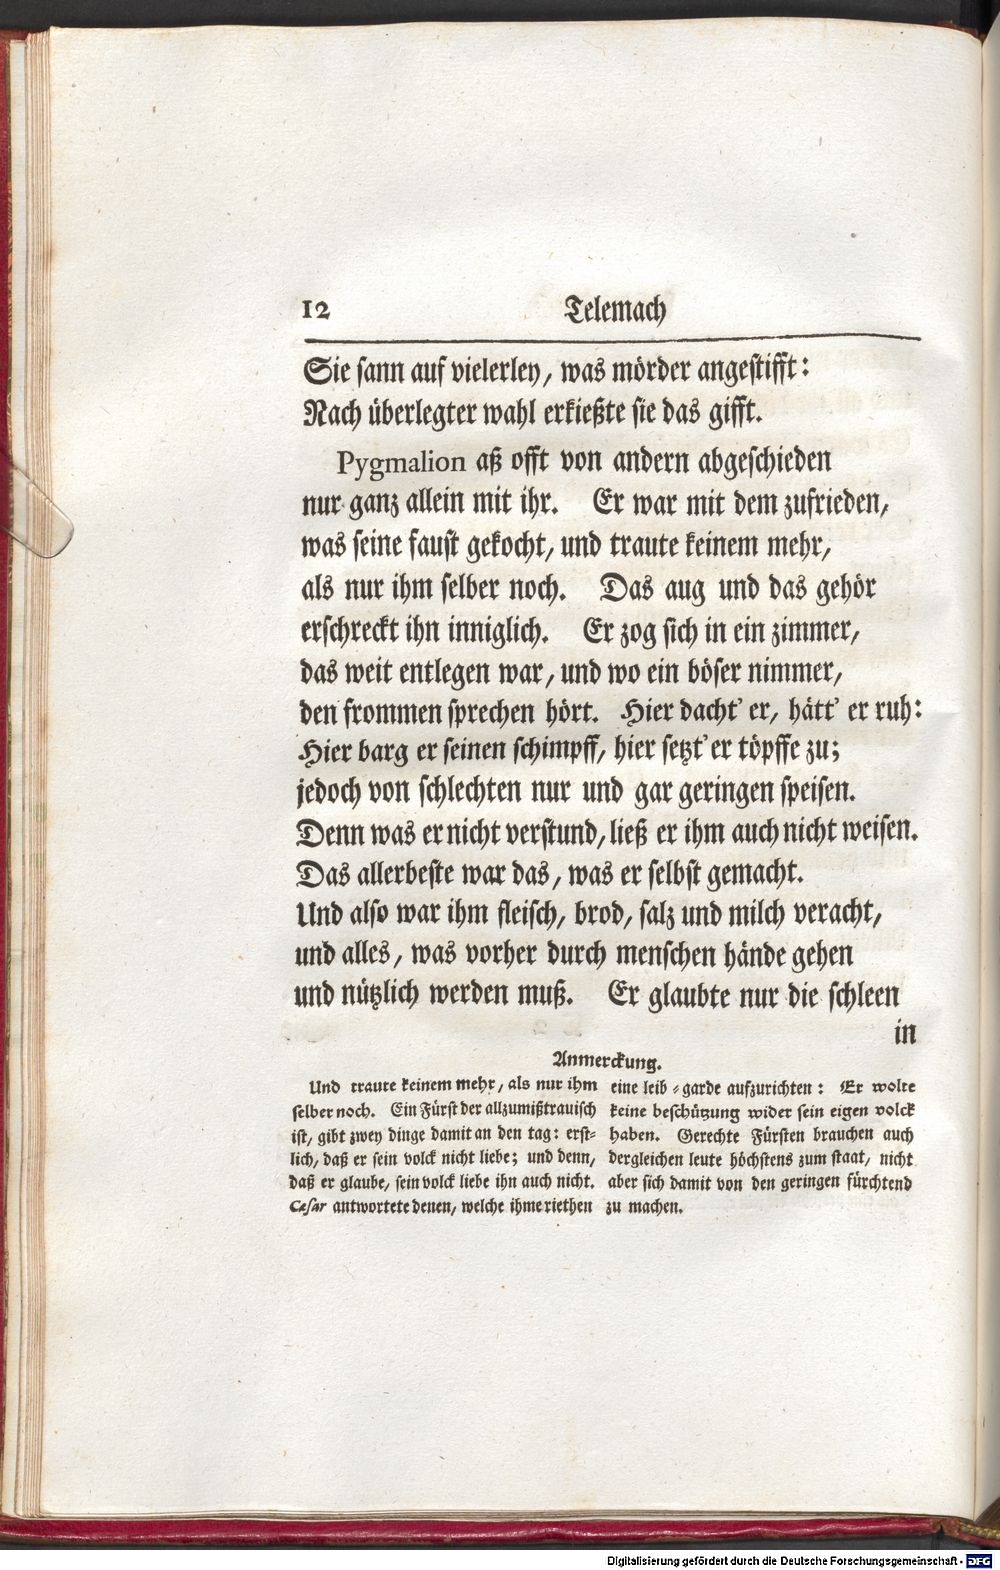 12 Telemach
Sie sann auf vielerley, was mörder angestifft:
Nach überlegter wahl erkießte sie das gifft.
Pygmalion aß offt von andern abgeschieden
nur ganz allein mit ihr. Er war mit dem zufrieden,
was seine faust gekocht, und traute keinem mehr,
als nur ihm selber noch. Das aug und das gehör
erschreckt ihn inniglich. Er zog sich in ein zimmer,
das weit entlegen war, und wo ein böser nimmer,
den frommen sprechen hört. Hier dacht' er, hätt' er ruh:
Hier barg er seinen schimpff, hier setzt' er töpffe zu;
jedoch von schlechten nur und gar geringen speisen.
Denn was er nicht verstund, ließ er ihm auch nicht weisen.
Das allerbeste war das, was er selbst gemacht.
Und also war ihm fleisch, brod, salz und milch veracht,
und alles, was vorher durch menschen hände gehen
und nützlich werden muß. Er glaubte nur die schleen
in
Anmerckung.
Und traute keinem mehr, als nur ihm
selber noch. Ein Fürst der allzumißtrauisch
ist, gibt zwey dinge damit an den tag: erst-
lich, daß er sein volck nicht liebe; und denn,
daß er glaube, sein volck liebe ihn auch nicht.
Cæsar antwortete denen, welche ihme riethen
eine leib-garde aufzurichten: Er wolte
keine beschützung wider sein eigen volck
haben. Gerechte Fürsten brauchen auch
dergleichen leute höchstens zum staat, nicht
aber sich damit von den geringen fürchtend
zu machen.
Digitalisierung gefördert durch die Deutsche Forschungsgemeinschaft - DFG